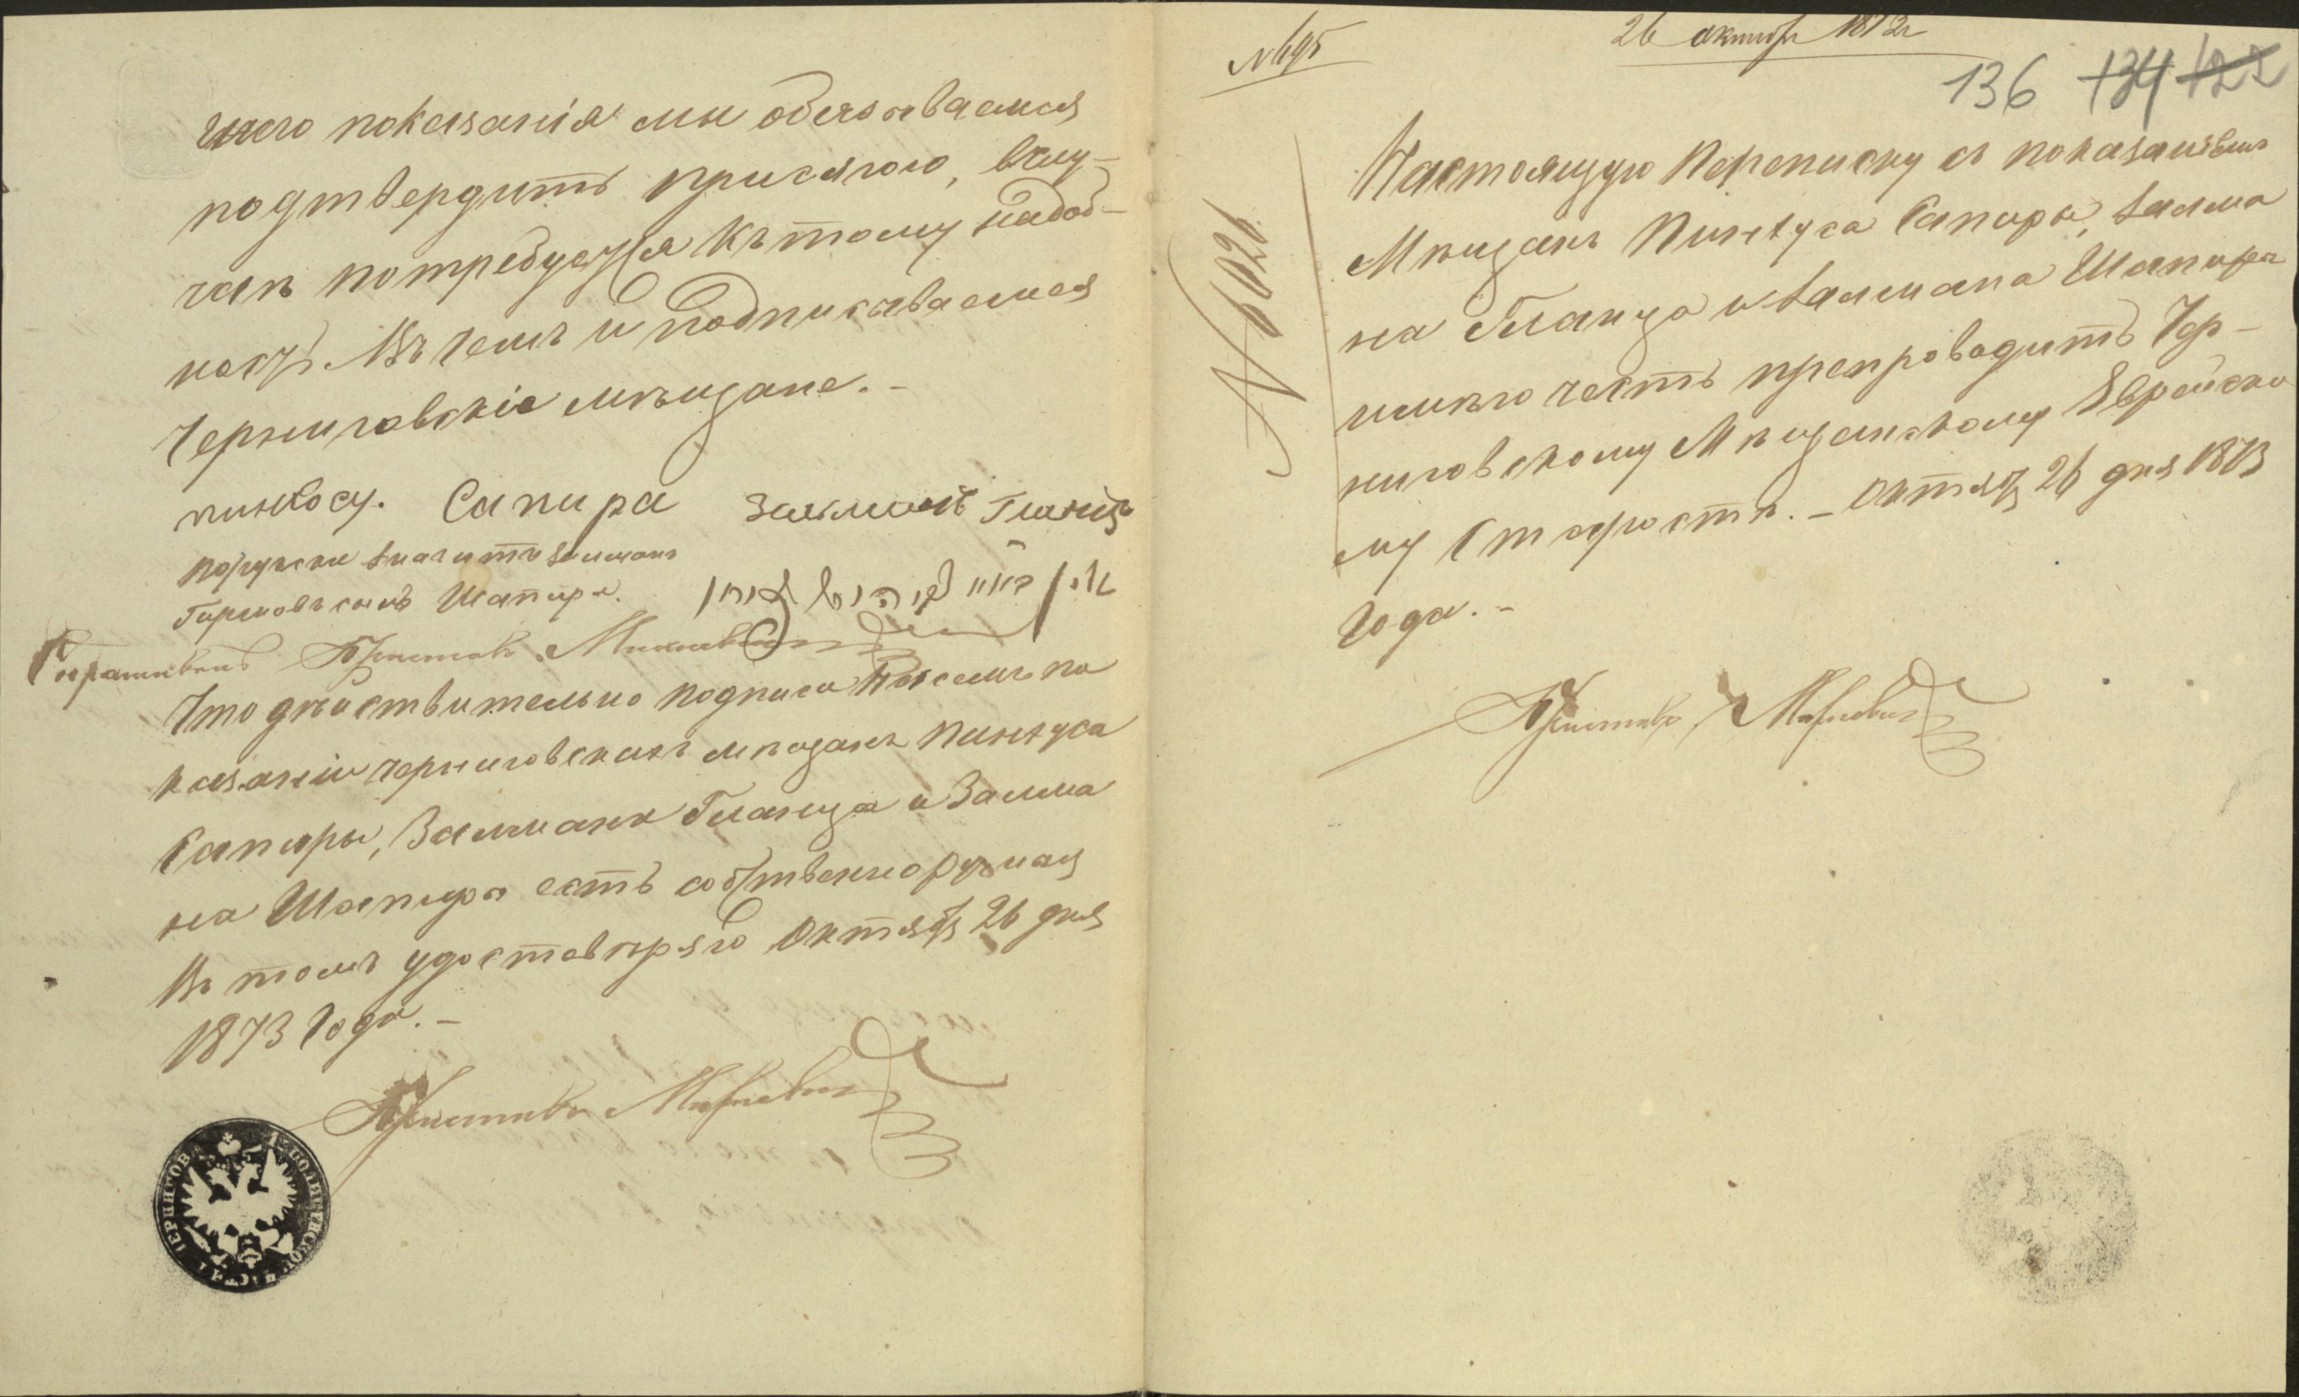 чнего показанія мы обязываемся
подтвердить присягою, вслу-
чаѣ потребуется къ тому надоб-
ность. Въ чемъ и подписываемся
Черниговскіе мѣщане. –
пинкосу. Сапира Залманъ Гланцъ
Залманъ
Гиршовъ сынъ Шапиро.
Спрашивалъ Приставъ
Что дѣйствительно подписи на семъ по
казаніи черниговскихъ мѣщанъ Пинхуса
Сапиры, Залмана Гланца и Залма
на Шапира есть собственноручная
Въ томъ удостовѣряю Октября 26 дня
1873 года. –
Приставъ
№ 695
26 октября 1873 г
136 134 122
№ 6026
Настоящую переписку съ показаніемъ
Мѣщанъ Пинхуса Сапиры, Залма
на Гланца и Залмана Шапира
имѣю честь препроводить Чер-
ниговскому Мѣщанскому Еврейско
му Старостѣ. – Октября 26 дня 1873
Года. –
Приставъ